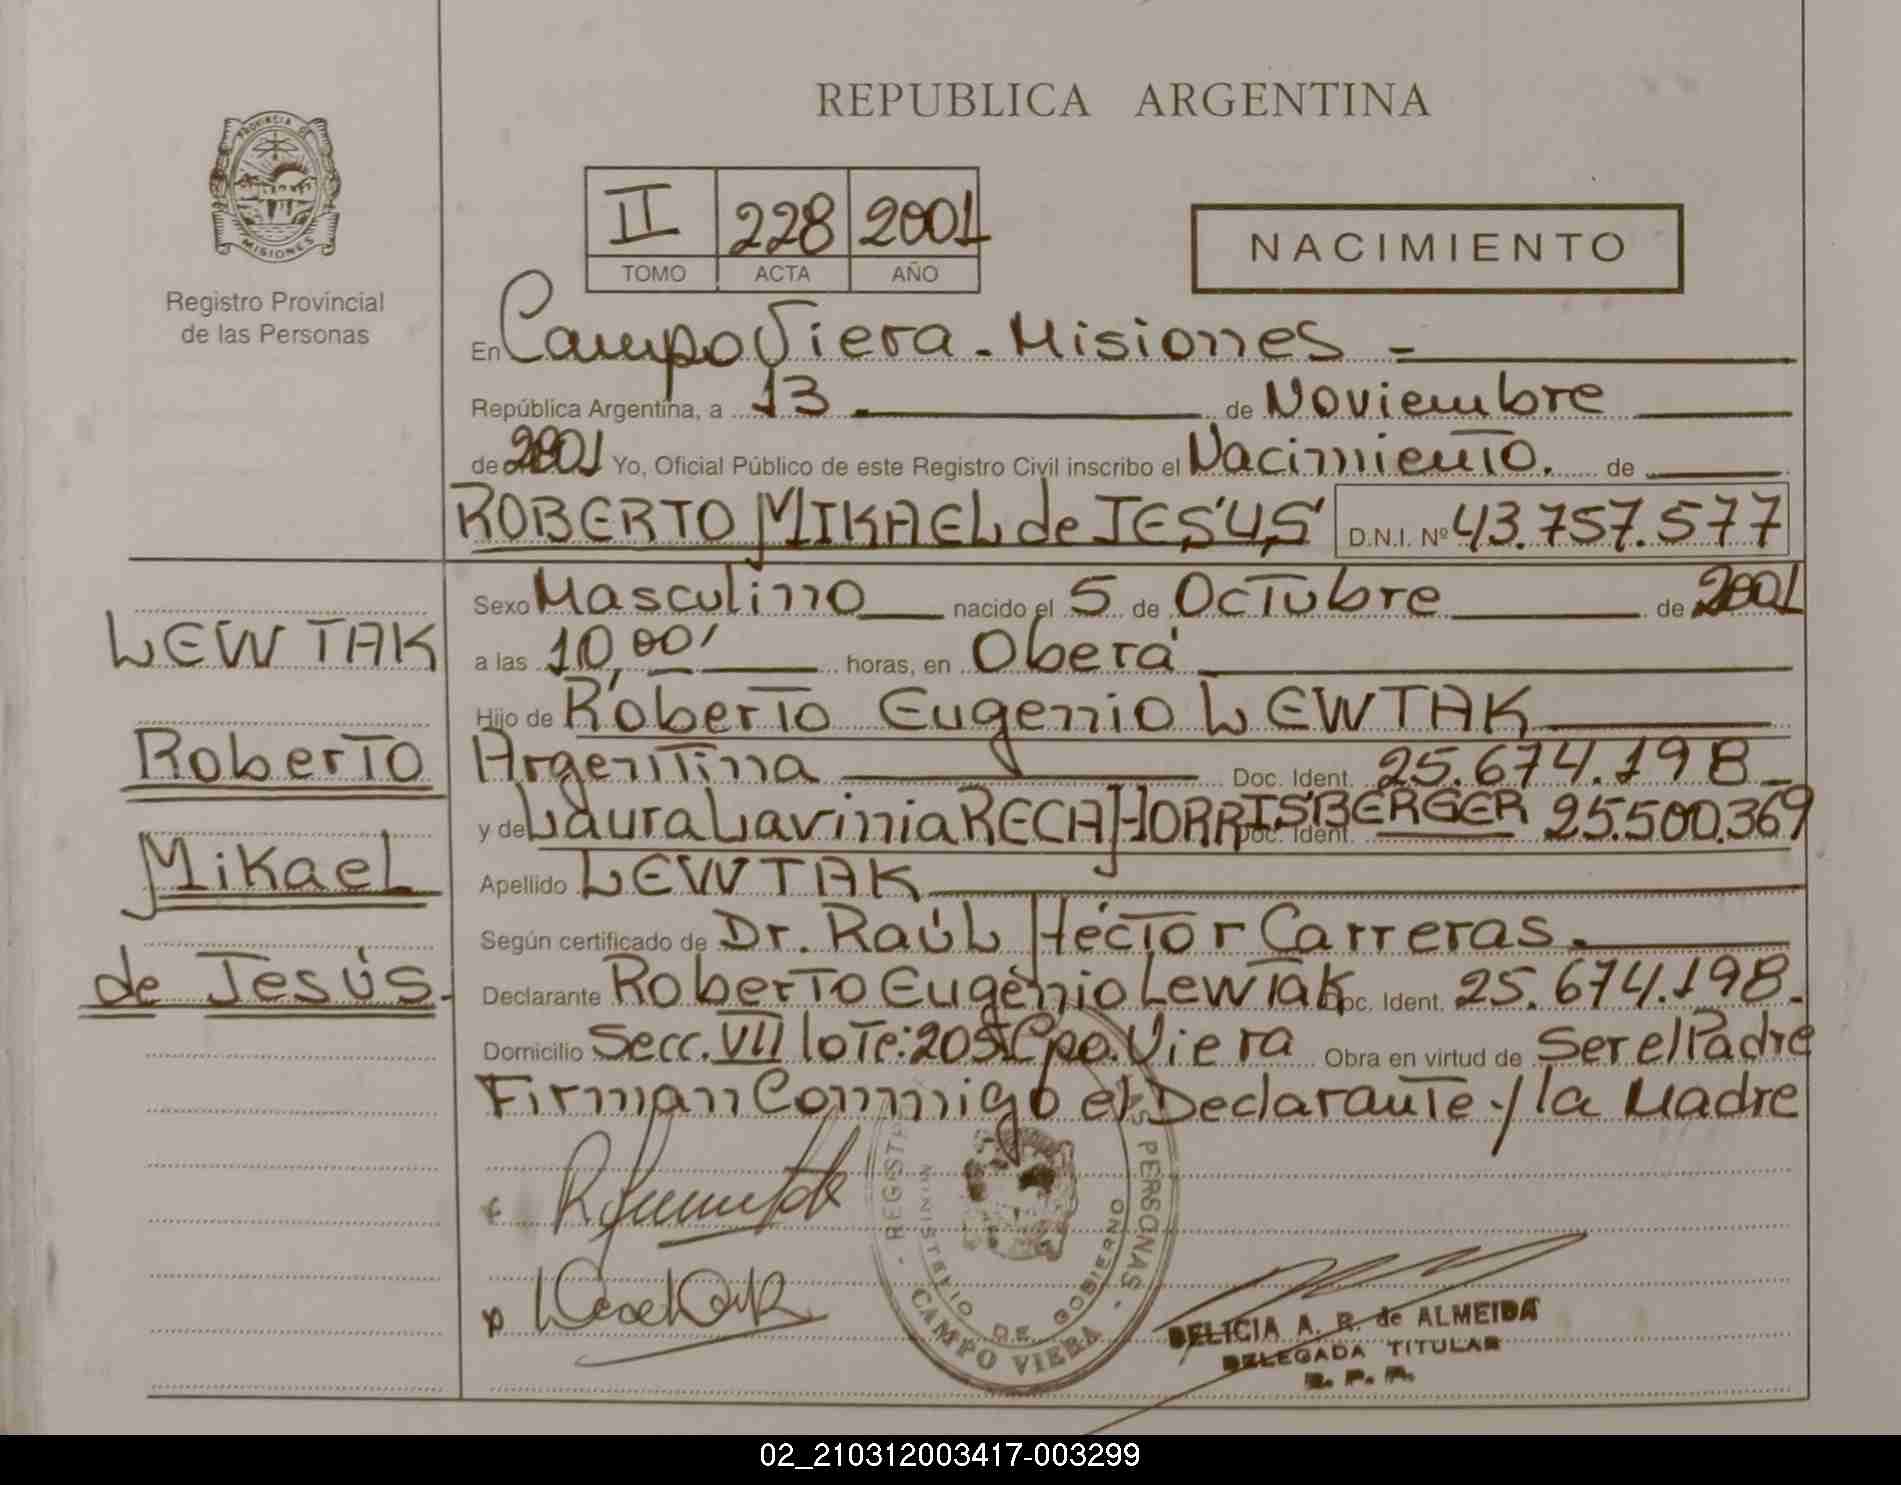 REPUBLICA ARGENTINA
PROVINCIA DE
MISIONES
Registro Provincial
de las Personas
II 228 2001
TOMO ACTA AÑO
NACIMIENTO
En Campo Viera - Misiones -
República Argentina, a 13 de Noviembre
de 2001 Yo, Oficial Público de este Registro Civil inscribo el Nacimiento. de
ROBERTO MIKAEL de JESÚS D.N.I. Nº 43.757.577
Sexo Masculino nacido el 5 de Octubre de 2001
a las 10,00' horas, en Oberá
Hijo de Roberto Eugenio LEWTAK
Argentina Doc. Ident. 25.674.198
y de Laura Lavinia RECH HORRISBERGER Doc. Ident. 25.500.369
Apellido LEWTAK
Según certificado de Dr. Raúl Héctor Carreras.
Declarante Roberto Eugenio Lewtak Doc. Ident. 25.674.198.
Domicilio Secc. VII lote: 205 Cpo. Viera Obra en virtud de Ser el Padre
Firman Conmigo el Declarante y la Madre
LEWTAK
Roberto
Mikael
de Jesús.
PERSONAS
MINISTERIO DE GOBIERNO
CAMPO VIERA
DELICIA A. R. de ALMEIDA
DELEGADA TITULAR
R. P. P.
02_210312003417-003299